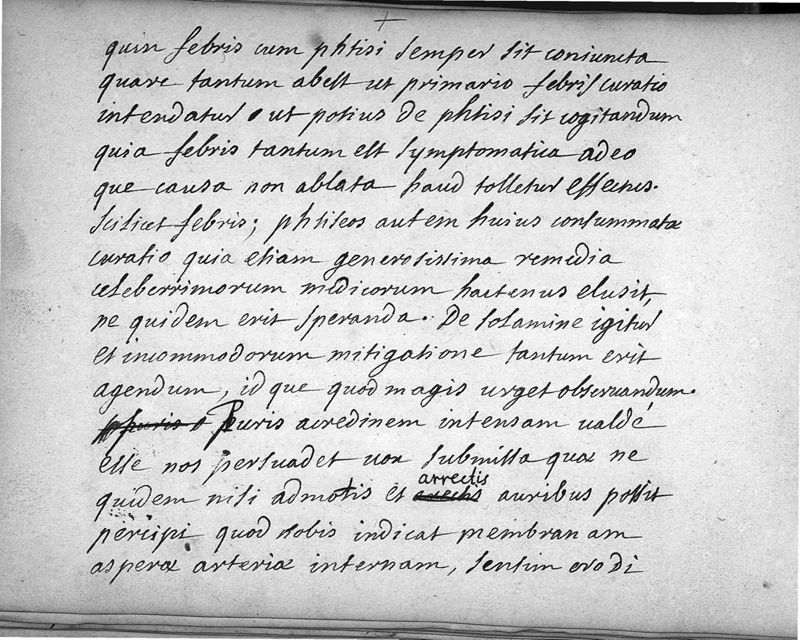 quin febris cum phtisi semper sit coniuncta
quare tantum abest ut primario febris curatio
intendatur ut potius de phtisi sit cogitandum
quia febris tantum est symptomatica adeo
que causa non ablata haud tolletur effectus.
scilicet febris; phtiseos autem huius consummatæ
curatio quia etiam generosissima remedia
celeberrimorum medicorum hactenus elusit,
ne quidem erit speranda. De solamine igitur
et incommodorum mitigatione tantum erit
agendum, id que quod magis urget observandum.
Puris acredinem intensam valdé
esse nos persuadet vox submissa quæ ne
quidem nisi admotis et arrectis auribus possit
percipi quod nobis indicat membranam
asperæ arteriæ internam, sensim erodi